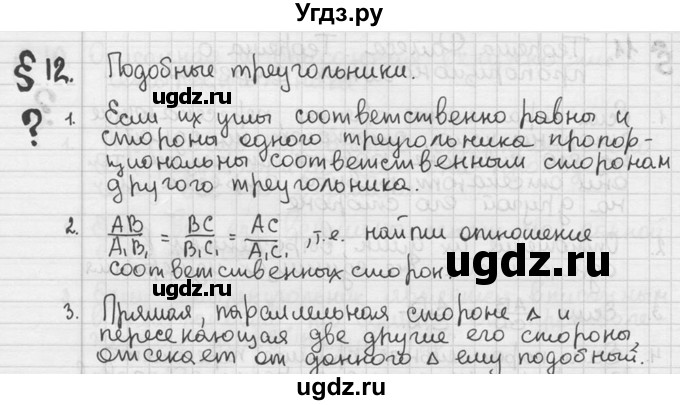 Угдз.ру
§ 12. Подобные треугольники.
? 1. Если их углы соответственно равны и
стороны одного треугольника пропор-
циональны соответственным сторонам
другого треугольника.
2. AB/A₁B₁ = BC/B₁C₁ = AC/A₁C₁, т.е. найти отношения
соответственных сторон.
3. Прямая, параллельная стороне Δ и
пересекающая две другие его стороны,
отсекает от данного Δ ему подобный.
ugdz.ru
ugdz.ru
ugdz.ru
ugdz.ru
ugdz.ru
ugdz.ru
ugdz.ru